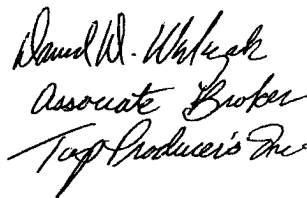 David W.
Associate Broker
Top Producer's Inc